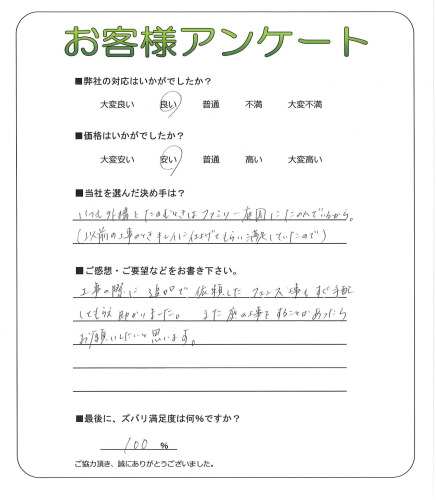 お客様アンケート
■弊社の対応はいかがでしたか？
大変良い 良い 普通 不満 大変不満
■価格はいかがでしたか？
大変安い 安い 普通 高い 大変高い
■当社を選んだ決め手は？
いつも外構をたのむときはファミリー庭園にたのんでいるから。
(以前の工事のときキレイに仕上げてもらい満足していたので)
■ご感想・ご要望などをお書き下さい。
工事の際に追加で依頼したフェンス工事もすぐ手配
してもらえ助かりました。 また庭の工事をすることがあったら
お願いしたいと思います。
■最後に、ズバリ満足度は何%ですか？
100 %
ご協力頂き、誠にありがとうございました。